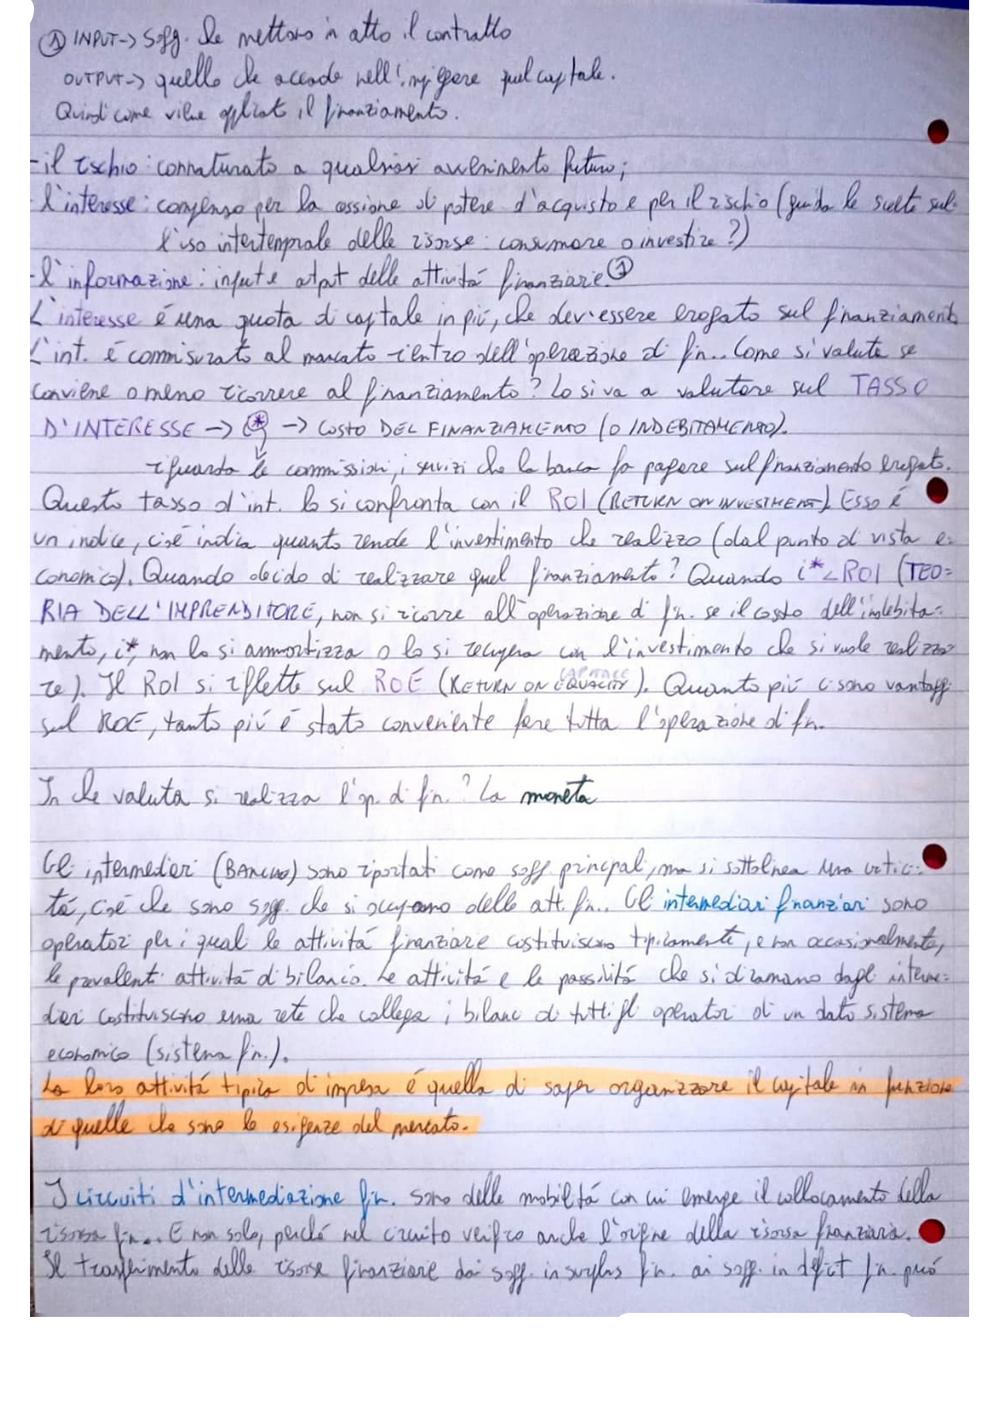 ① INPUT-> Sogg. che mettono in atto il contratto
OUTPUT-> quello che accade nell' quel capitale.
Quindi come viene applicato il finanziamento.
- il rischio: connaturato a qualsiasi avvenimento futuro;
- l'interesse: compenso per la cessione di potere d'acquisto e per il rischio (guida le scelte sul-
l'uso intertemporale delle risorse: consumare o investire?)
- l'informazione: input e output delle attività finanziarie. ①
L'interesse é una quota di capitale in piú, che dev'essere erogato sul finanziamento
L'int. é commisurato al mancato rientro dell'operazione di fin.. Come si valuta se
conviene o meno ricorrere al finanziamento? Lo si va a valutare sul TASSO
D'INTERESSE -> i* -> COSTO DEL FINANZIAMENTO (O INDEBITAMENTO).
riguarda le commissioni, i servizi che la banca fa pagare sul finanziamento erogato.
Questo tasso d'int. lo si confronta con il ROI (RETURN ON INVESTMENT). Esso é
un indice, cioé indica quanto rende l'investimento che realizzo (dal punto di vista e-
conomico). Quando decido di realizzare quel finanziamento? Quando i*<ROI (TEO=
RIA DELL'IMPRENDITORE, non si ricorre all'operazione di fin. se il costo dell'indebita=
mento, i*, non lo si ammortizza o lo si recupera con l'investimento che si vuole realizza-
re). Il ROI si riflette sul ROE (RETURN ON EQUACITY). Quanto piú ci sono vantaggi
sul ROE, tanto piú é stato conveniente fare tutta l'operazione di fin.
In che valuta si realizza l'op. di fin.? La moneta
Gli intermediari (BANCHE) sono riportati come sogg principali, ma si sottolinea una critici=
tá, cioé che sono sogg. che si occupano delle att. fin.. Gli intermediari finanziari sono
operatori per i quali le attivitá finanziarie costituiscono tipicamente, e non occasionalmente,
le prevalenti attivitá di bilancio. Le attivitá e le passivitá che si diramano dagli interme=
diari costituiscono una rete che collega i bilanci di tutti gli operatori di un dato sistema
economico (sistema fin.).
La loro attivitá tipica di impresa é quella di saper organizzare il capitale in funzione
di quelle che sono le esigenze del mercato.
I circuiti d'intermediazione fin. sono delle mobilitá con cui emerge il collocamento della
risorsa fin.. E non solo, perché nel circuito verifico anche l'origine della risorsa finanziaria.
Il trasferimento delle risorse finanziarie dai sogg. in surplus fin. ai sogg. in deficit fin. puó